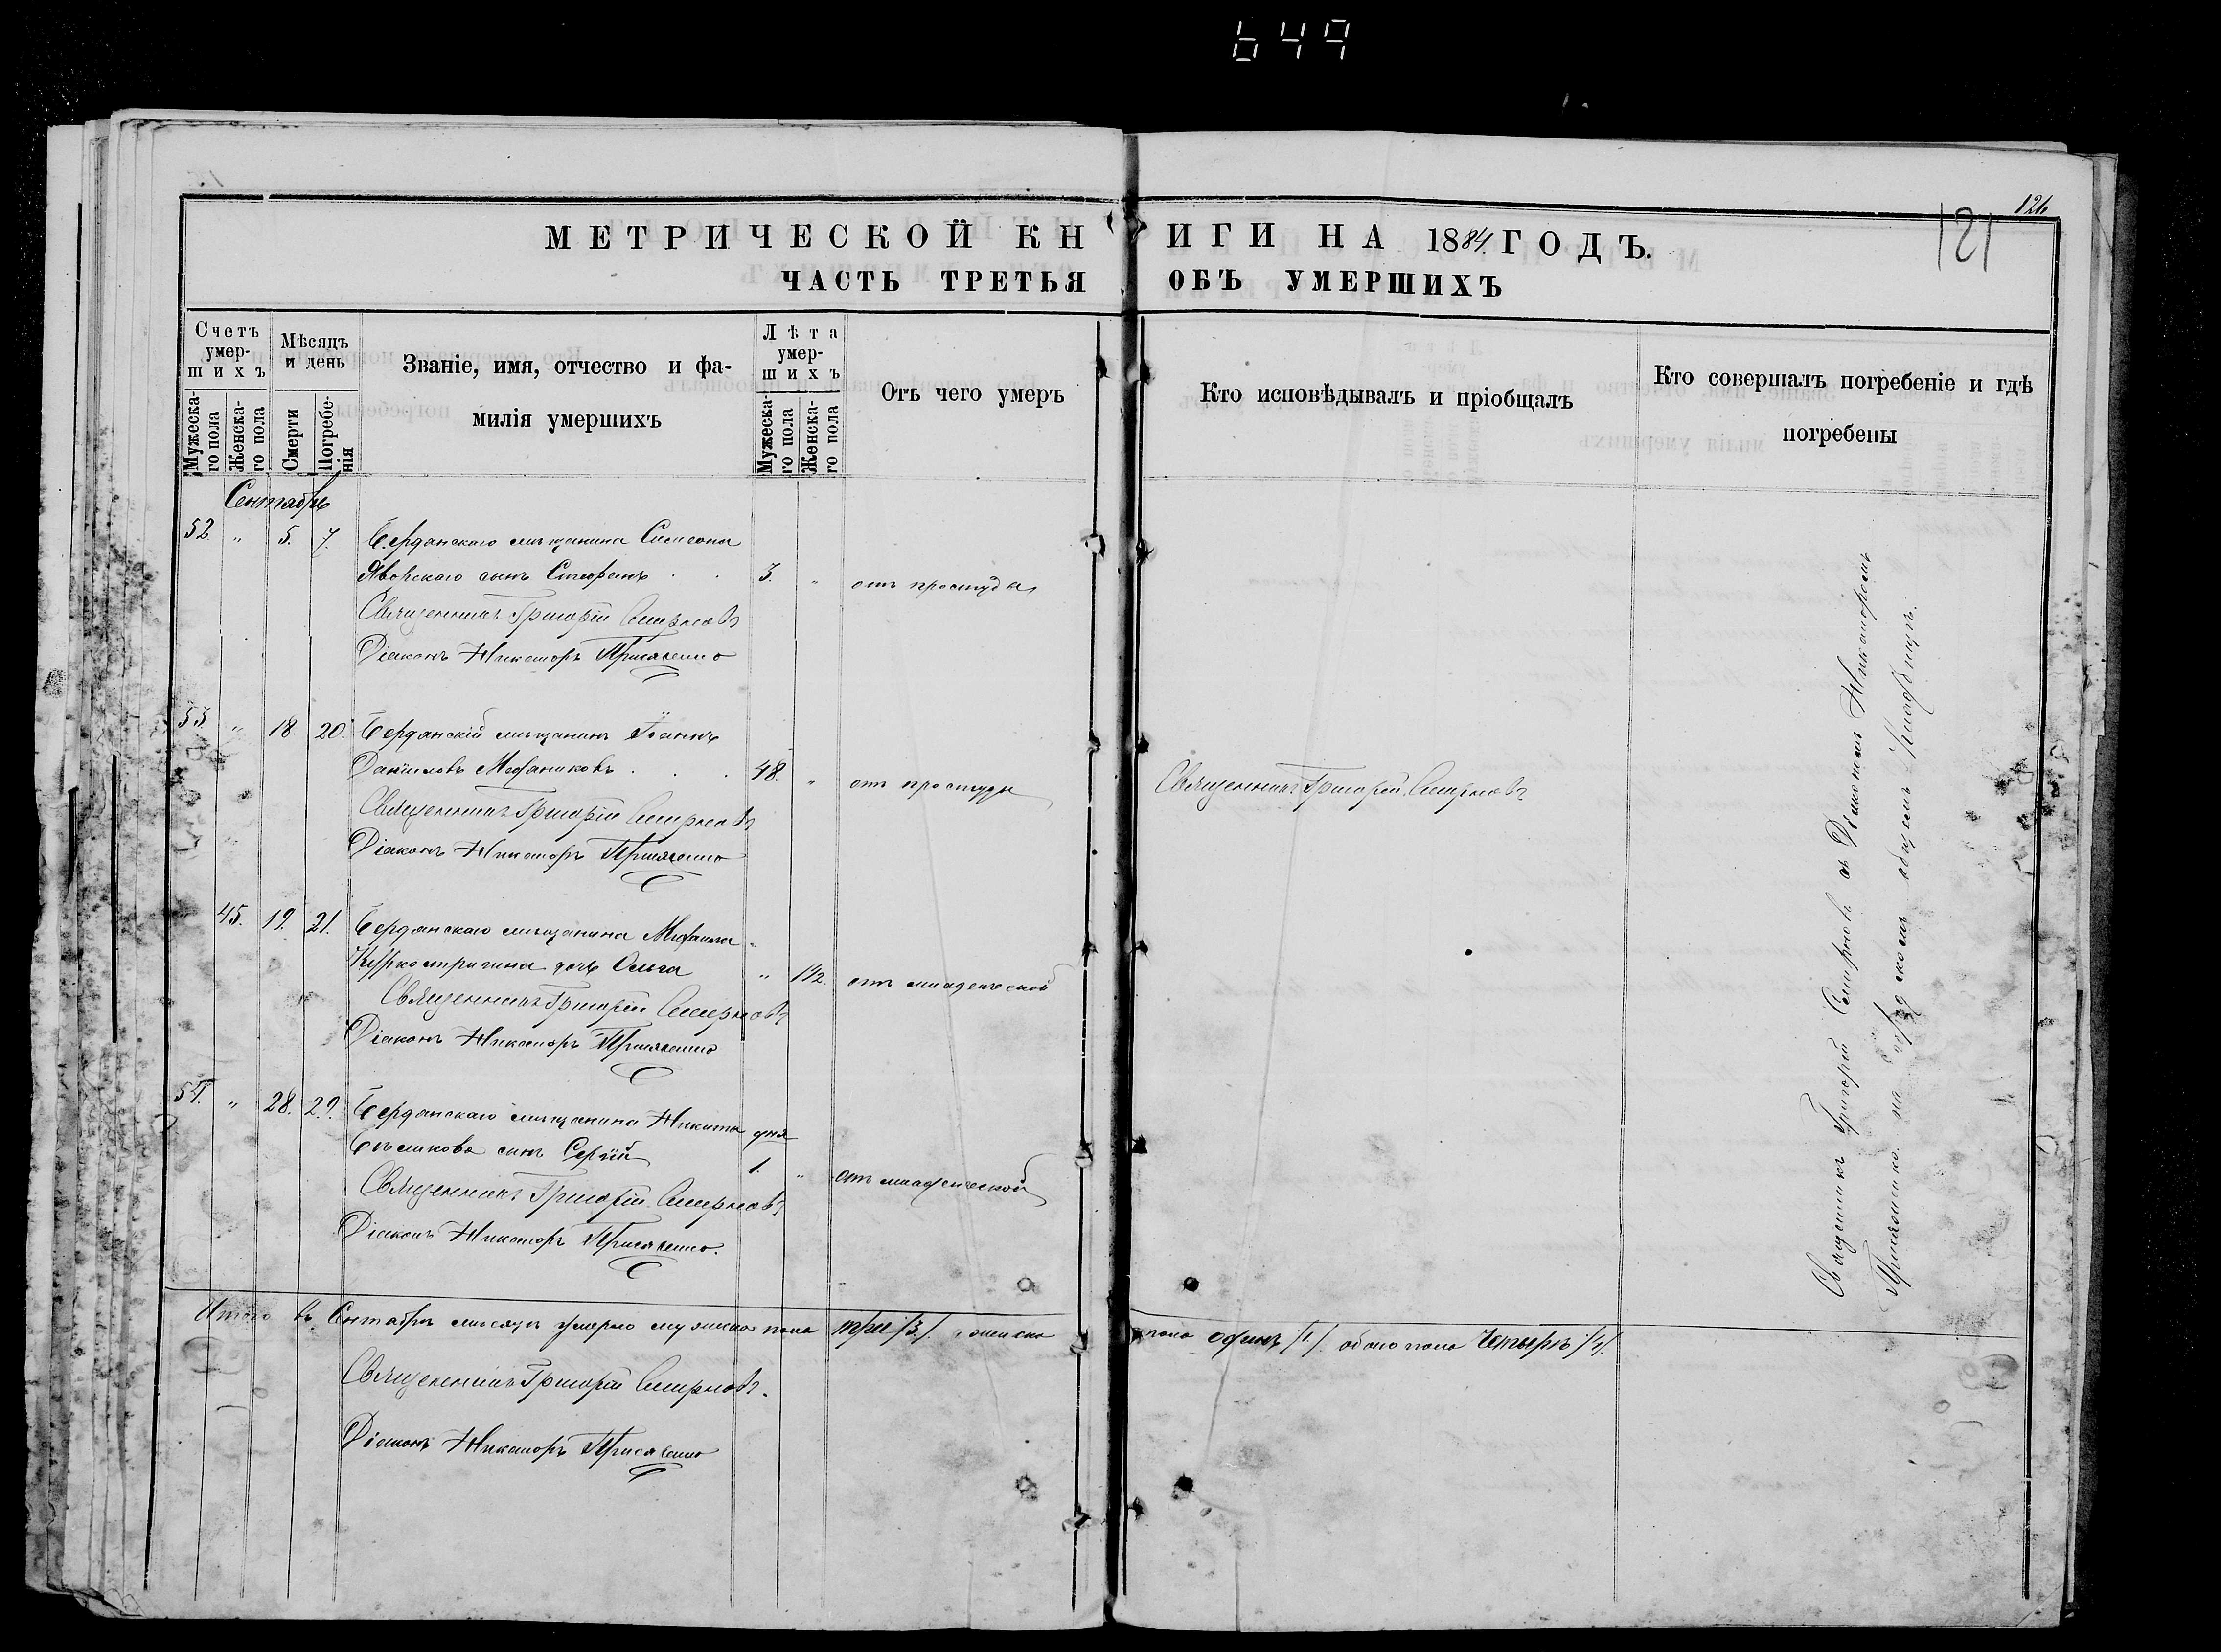 649
126
121
МЕТРИЧЕСКОЙ КНИГИ НА 1884 ГОДЪ.
ЧАСТЬ ТРЕТЬЯ ОБЪ УМЕРШИХЪ
Счетъ умершихъ
Мужескаго пола
Женскаго пола
Мѣсяцъ и день
Смерти
Погребенія
Званіе, имя, отчество и фамилія умершихъ
Лѣта умершихъ
Мужескаго пола
Женскаго пола
Отъ чего умеръ
Кто исповѣдывалъ и пріобщалъ
Кто совершалъ погребеніе и гдѣ погребены
Сентябрь
52. " 5. 7. Бердянскаго мѣщанина Симеона
Яворскаго сынъ Стефанъ . . 3. " отъ простуды
Священникъ Григорій Смирновъ
Діаконъ Никаноръ Присяженко
53. " 18. 20. Бердянскій мѣщанинъ Іоаннъ
Даніиловъ . . . 48. " отъ простуды Священникъ Григорій Смирновъ
Священникъ Григорій Смирновъ
Діаконъ Никаноръ Присяженко
45. 19. 21. Бердянскаго мѣщанина Михаила "
дочь Ольга " 1 1/2. отъ младенческой
Священникъ Григорій Смирновъ
Діаконъ Никаноръ Присяженко
54. " 28. 29. Бердянскаго мѣщанина Никиты дня
сынъ Сергій 1. " отъ младенческой
Священникъ Григорій Смирновъ
Діаконъ Никаноръ Присяженко.
Священникъ Григорій Смирновъ съ Діакономъ Никаноромъ
Присяженко на городскомъ общемъ кладбищѣ.
Итого въ Сентябрѣ мѣсяцѣ умерло мужеска пола три /3/. женска пола одинъ /1/. обоего пола четыре /4/.
Священникъ Григорій Смирновъ.
Діаконъ Никаноръ Присяженко